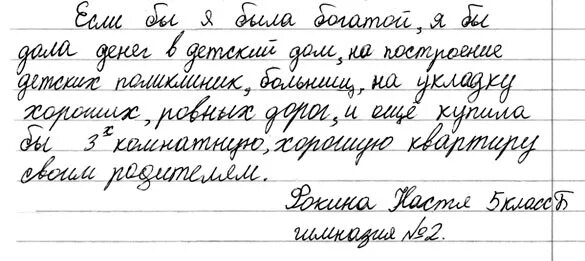 Если бы я была богатой, я бы
дала денег в детский дом, на построение
детских поликлиник, больниц, на укладку
хороших, ровных дорог, и ещё купила
бы 3х комнатную, хорошую квартиру
своим родителям.
Фокина Настя 5 класс Б
гимназия №2.